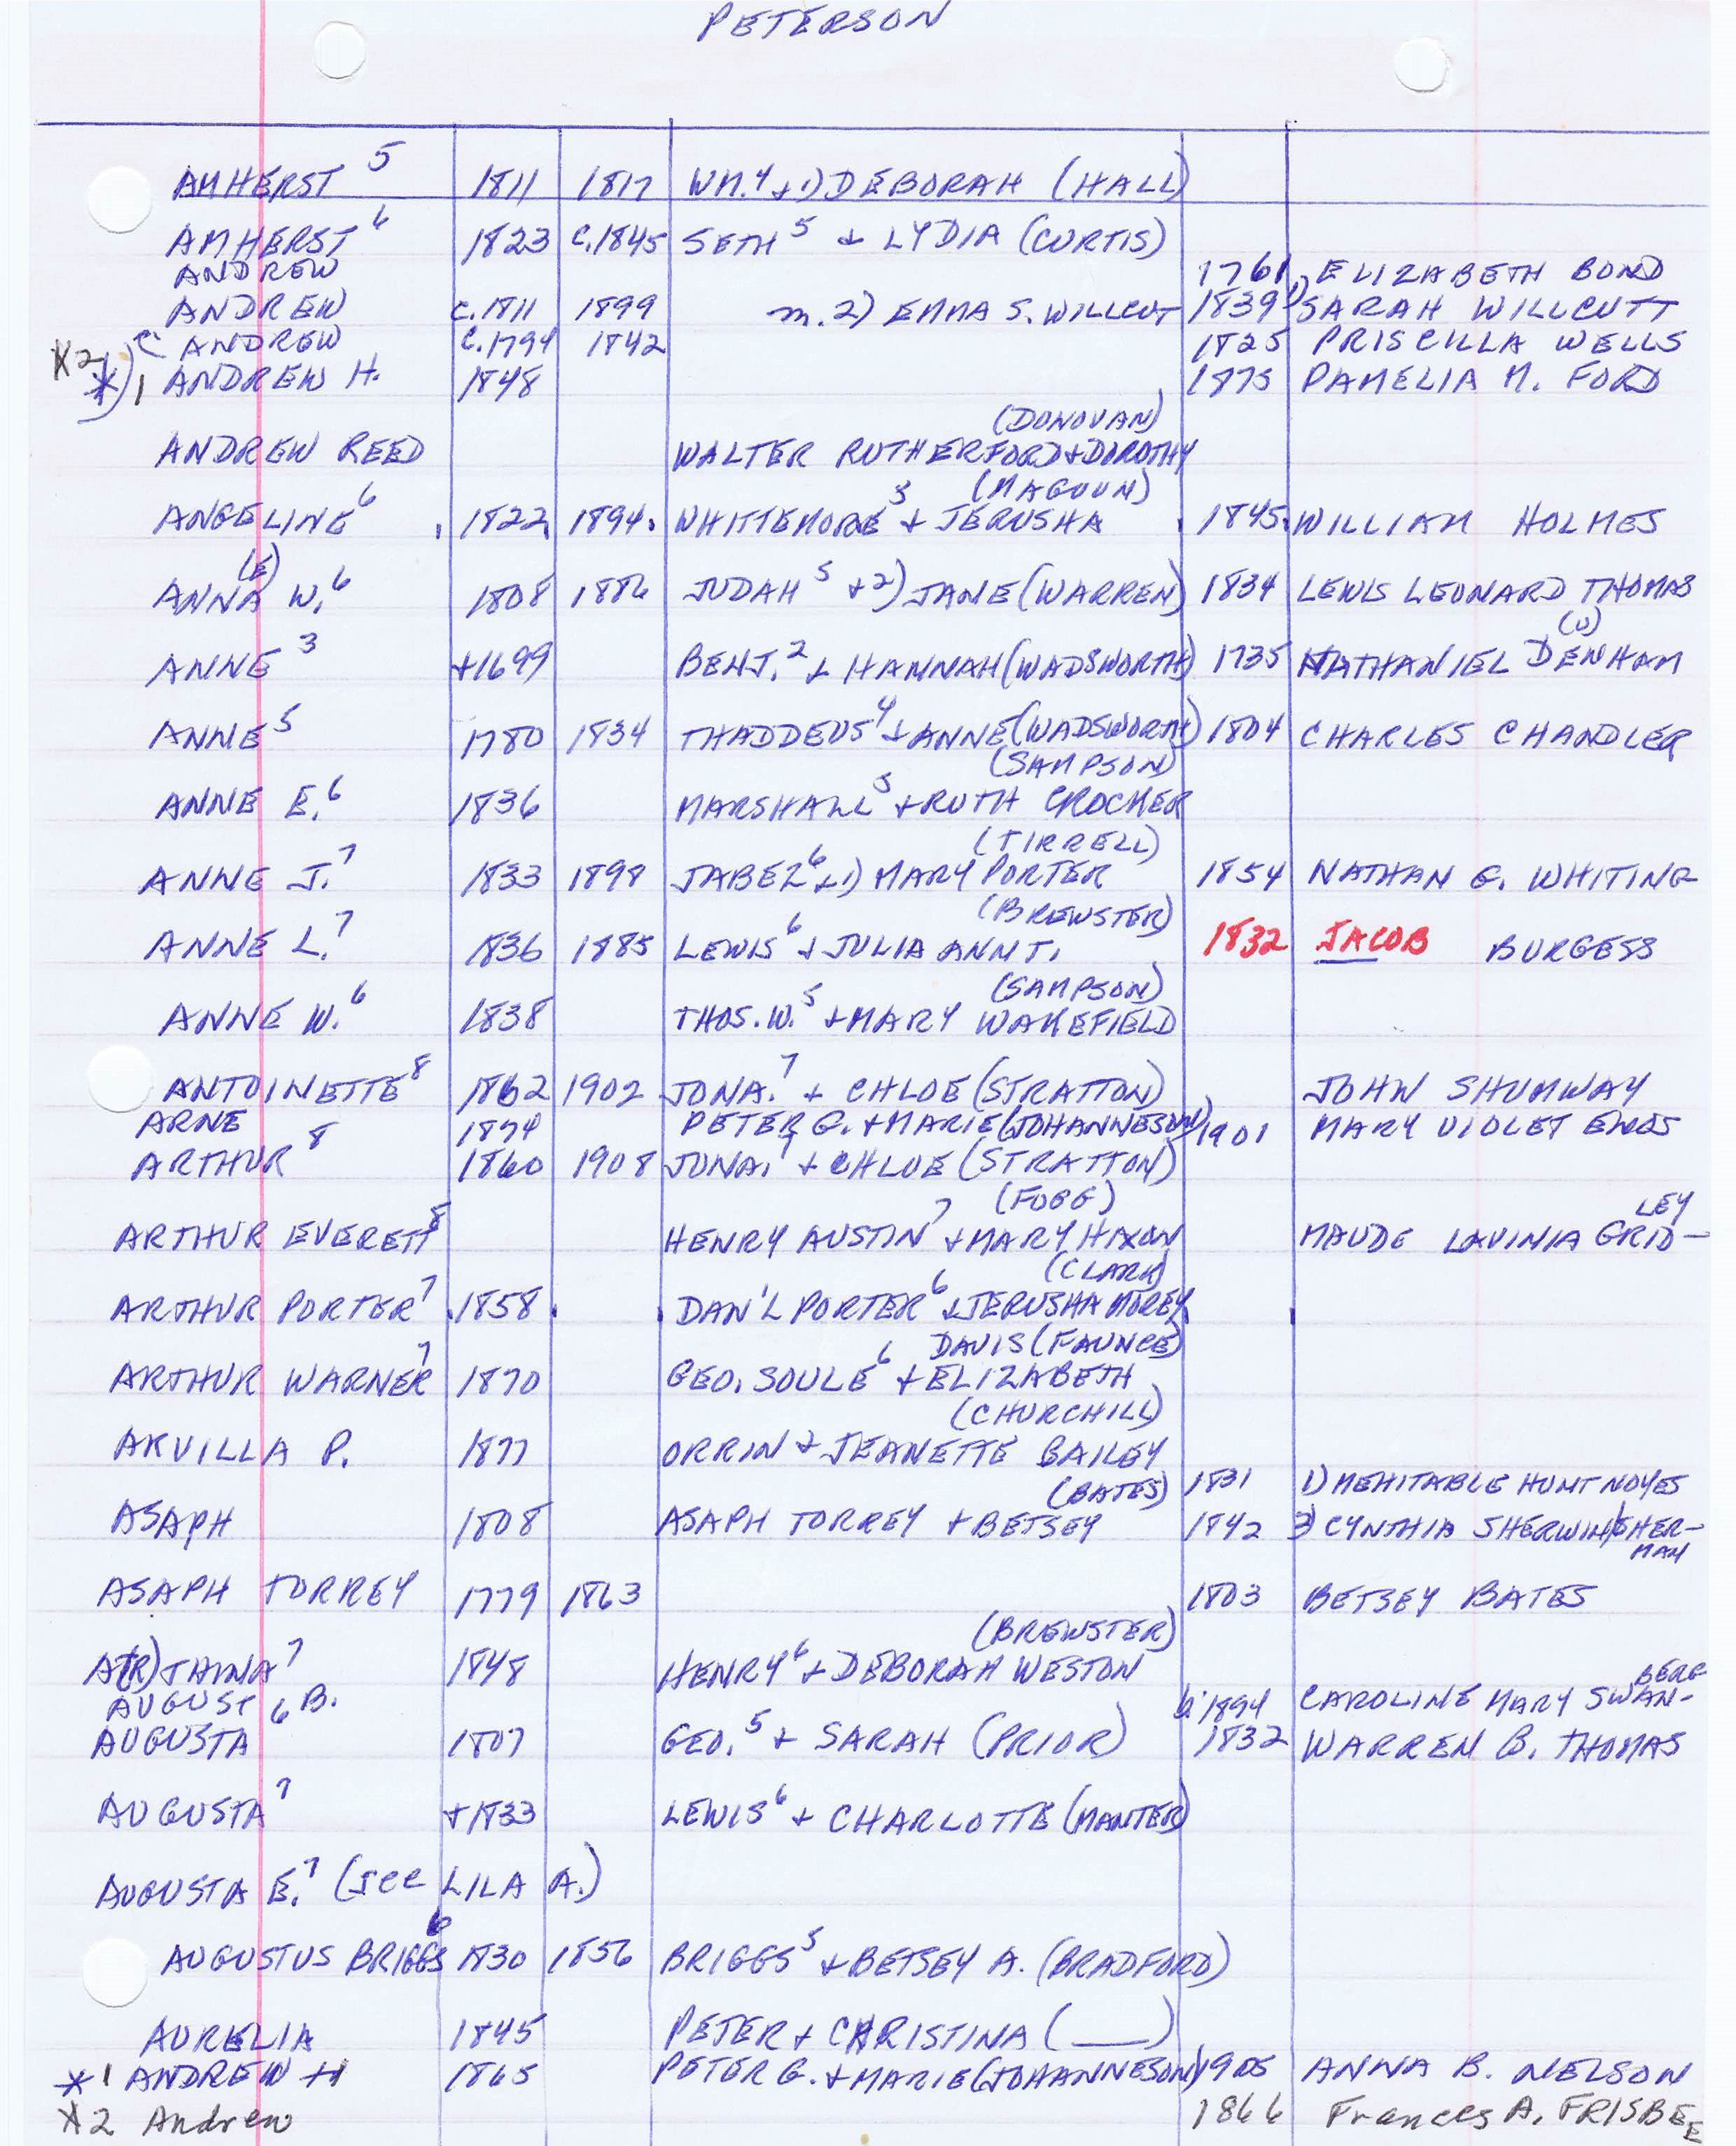 PETERSON
AMHERST 5 1811 1817 WM.4 + 1) DEBORAH (HALL)
AMHERST 6 1823 C.1845 SETH 5 + LYDIA (CURTIS)
ANDREW 1761 ELIZABETH BOND
ANDREW C.1811 1899 m. 2) EMMA S. WILLCUT 1839 1) SARAH WILLCUTT
C ANDREW C.1794 1842 1825 PRISCILLA WELLS
*2 *) 1 ANDREW H. 1848 1875 PAMELIA M. FORD
(DONOVAN)
ANDREW REED WALTER RUTHERFORD + DOROTHY
(MAGOUN)
ANGELINE 6 1822 1894 WHITTEMORE 5 + JERUSHA 1845 WILLIAM HOLMES
(E)
ANNA W. 6 1808 1886 JUDAH 5 + 2) JANE (WARREN) 1834 LEWIS LEONARD THOMAS
(U)
ANNE 3 +1699 BENJ. 2 + HANNAH (WADSWORTH) 1735 NATHANIEL DENHAM
ANNE 5 1780 1834 THADDEUS 4 + ANNE (WADSWORTH) 1804 CHARLES CHANDLER
(SAMPSON)
ANNE E. 6 1836 MARSHALL 5 + RUTH CROCKER
(TIRRELL)
ANNE J. 7 1833 1898 JABEZ 6 + 1) MARY PORTER 1854 NATHAN G. WHITING
(BREWSTER)
ANNE L. 7 1836 1885 LEWIS 6 + JULIA ANN T. 1832 JACOB BURGESS
(SAMPSON)
ANNE W. 6 1838 THOS. W. 5 + MARY WAKEFIELD
ANTOINETTE 8 1862 1902 JONA. 7 + CHLOE (STRATTON) JOHN SHUMWAY
ARNE 1874 PETER G. + MARIE (JOHANNESON) 1901 MARY VIOLET ENOS
ARTHUR 8 1860 1908 JONA. 7 + CHLOE (STRATTON)
(FOGG) LEY
ARTHUR EVERETT 8 HENRY AUSTIN 7 + MARY HIXON MAUDE LAVINIA GRID-
(CLARK)
ARTHUR PORTER 7 1858 DAN'L PORTER 6 + JERUSHA MOREY
DAVIS (FAUNCE)
ARTHUR WARNER 7 1870 GEO. SOULE 6 + ELIZABETH
(CHURCHILL)
ARVILLA P. 1877 ORRIN + JEANETTE BAILEY
(BATES) 1831 1) MEHITABLE HUNT NOYES
ASAPH 1808 ASAPH TORREY + BETSEY 1842 CYNTHIA SHERWIN/SHER-
MAN
ASAPH TORREY 1779 1863 1803 BETSEY BATES
(BREWSTER)
A(R)THINA 7 1848 HENRY 6 + DEBORAH WESTON
BERG
AUGUST B. b. 1894 CAROLINE MARY SWAN-
AUGUSTA 6 1807 GEO. 5 + SARAH (PRIOR) 1832 WARREN B. THOMAS
AUGUSTA 7 +1833 LEWIS 6 + CHARLOTTE (MANTER)
AUGUSTA E. 7 (see LILA A.)
AUGUSTUS BRIGGS 6 1830 1856 BRIGGS 5 + BETSEY A. (BRADFORD)
AURELIA 1845 PETER + CHRISTINA (___)
*1 ANDREW H 1865 PETER G. + MARIE (JOHANNESON) 1905 ANNA B. NELSON
*2 Andrew 1866 Frances A. FRISBEE